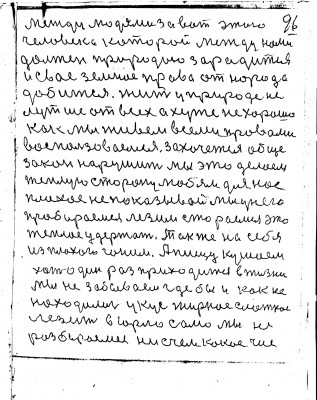 96
между людьми зовот этого
человека которой между нами
должен природою зародится
и свое земное права от народа
добится. жит у природе не
лутше от всех а хуже не хорошо
как мы живем всеми правами
воспользоваемся. захочется обще
закон нарушит мы это делаем
теплую сторону любям для нас
плохое не показывай мы у него
пробираемся лезим стораемся это
теплое удержат. Также на себя
из плохого гоним. А пищу кушаем
хотя один раз приходится в жизни
мы не забываем где бы и как не
находился укус жирное слаткое
лезит в горло само мы не
разбираемся ни с чем какое чие